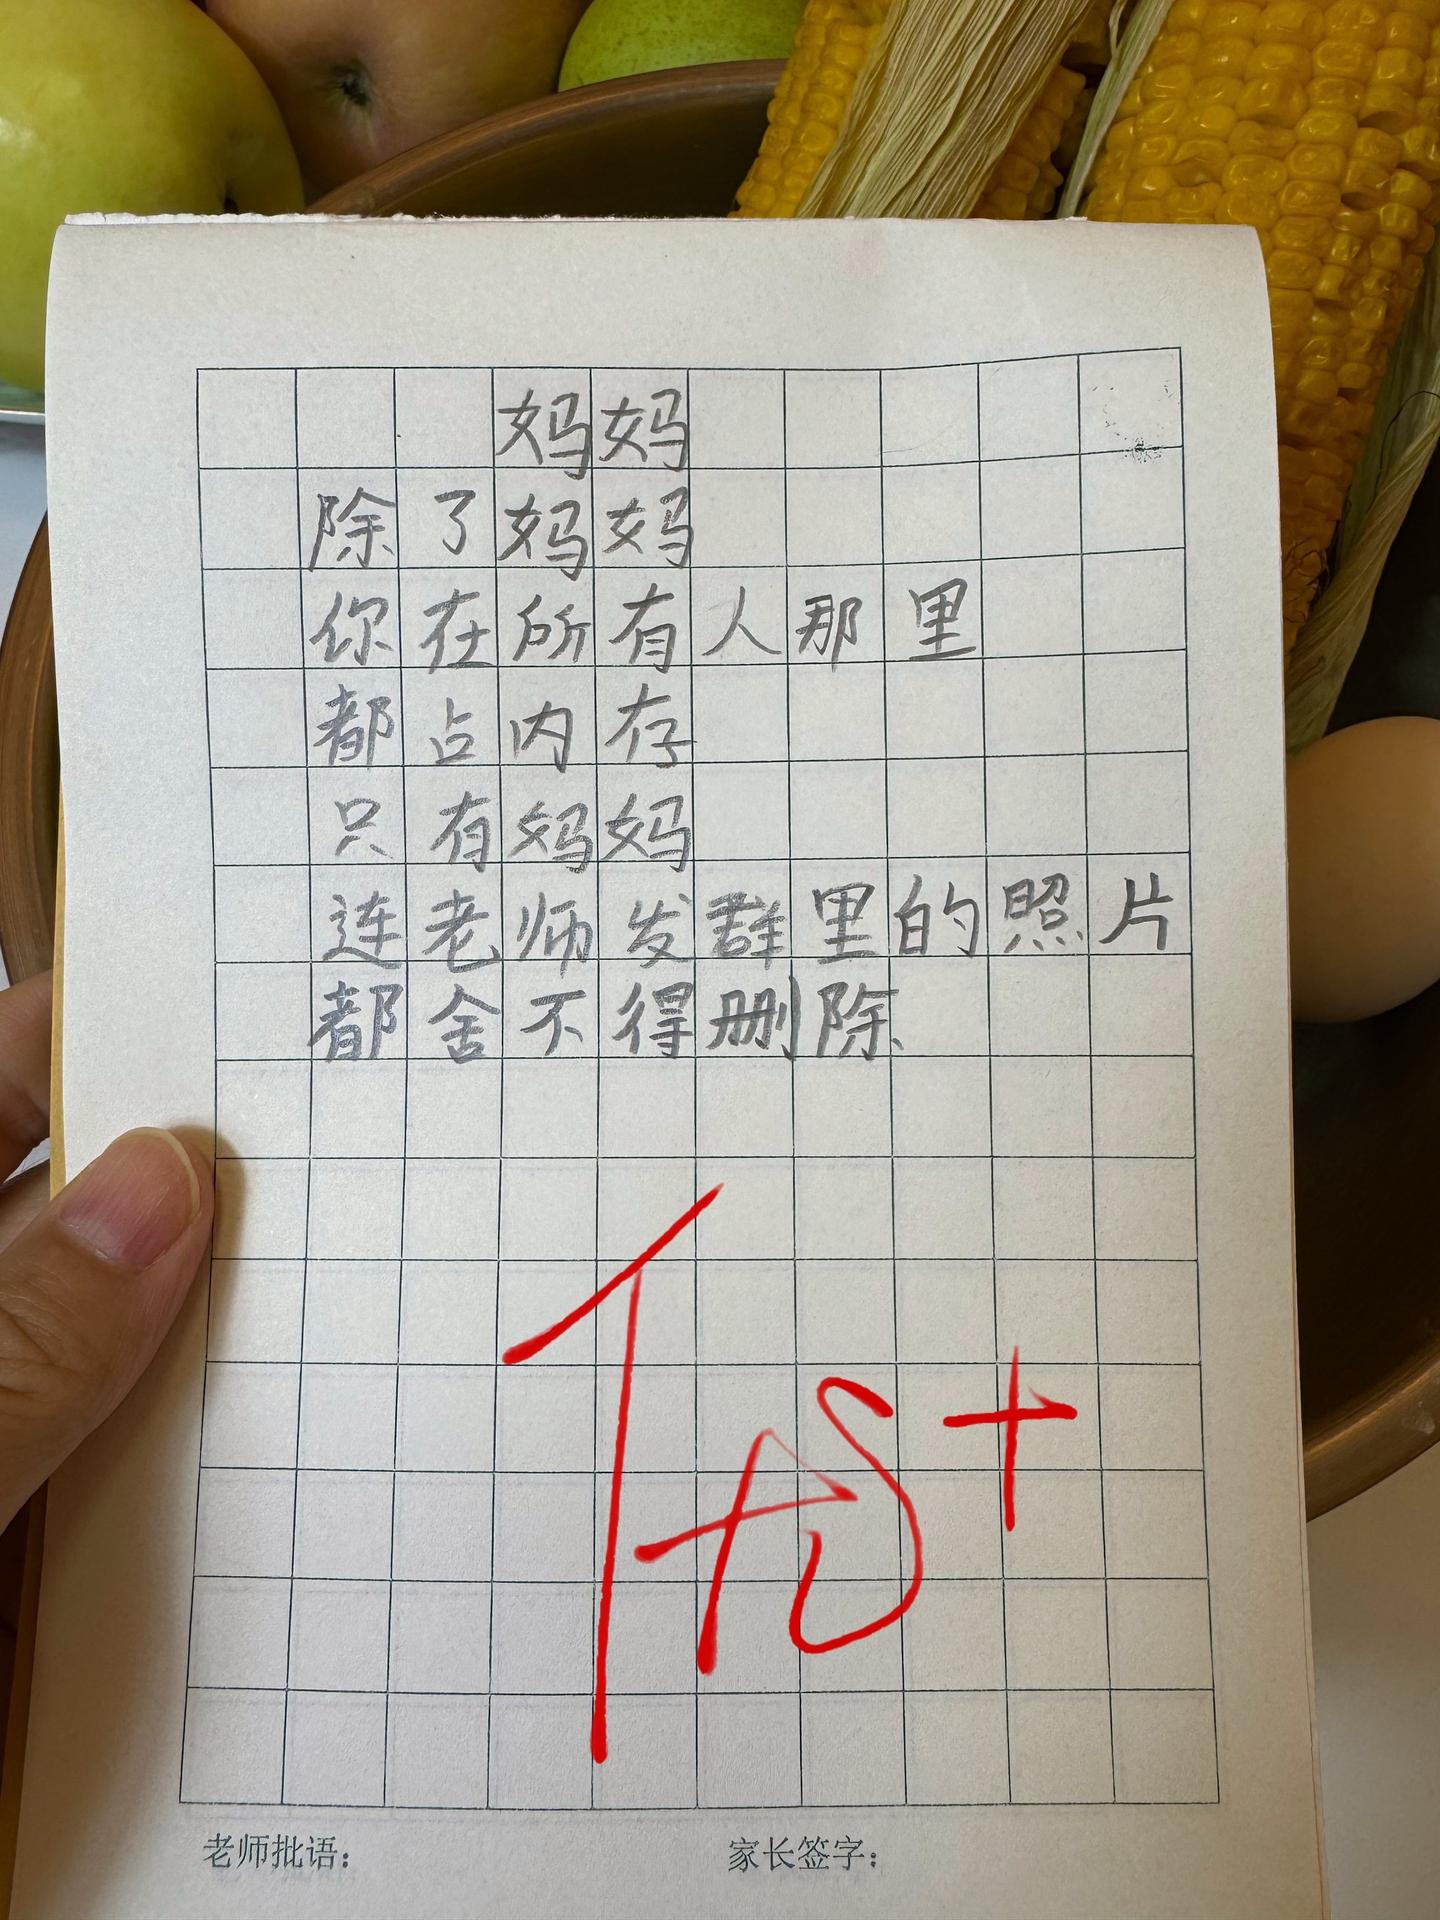 妈妈
除了妈妈
你在所有人那里
都占内存
只有妈妈
连老师发群里的照片
都舍不得删除
老师批语：
家长签字：